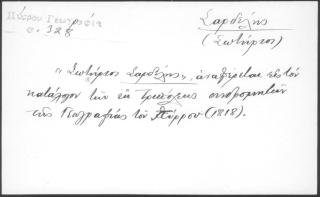 Πύρρου Γεωγραφία
σ. 328
Σαρδέλης
(Σωτήριος)
"Σωτήριος Σαρδέλης", αναφέρεται εις τον
κατάλογον των εκ συνδρομητών
της Γεωγραφίας του Πύρρου (1818).